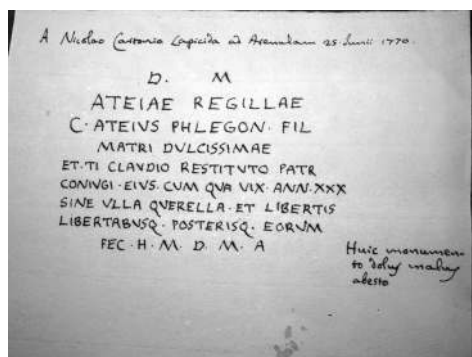 A Nicolao Cartonio Lapicida ad Arenulam 25 Junii 1770.
D. M
ATEIAE REGILLAE
C· ATEIVS PHLEGON· FIL
MATRI DVLCISSIMAE
ET· TI CLAVDIO RESTITVTO PATR
CONIVGI· EIVS· CUM QVA VIX· ANN· XXX
SINE VLLA QVERELLA· ET LIBERTIS
LIBERTABVSQ· POSTERISQ· EORVM
FEC· H· M· D· M· A
Huic monumen-
to dolus malus
abesto